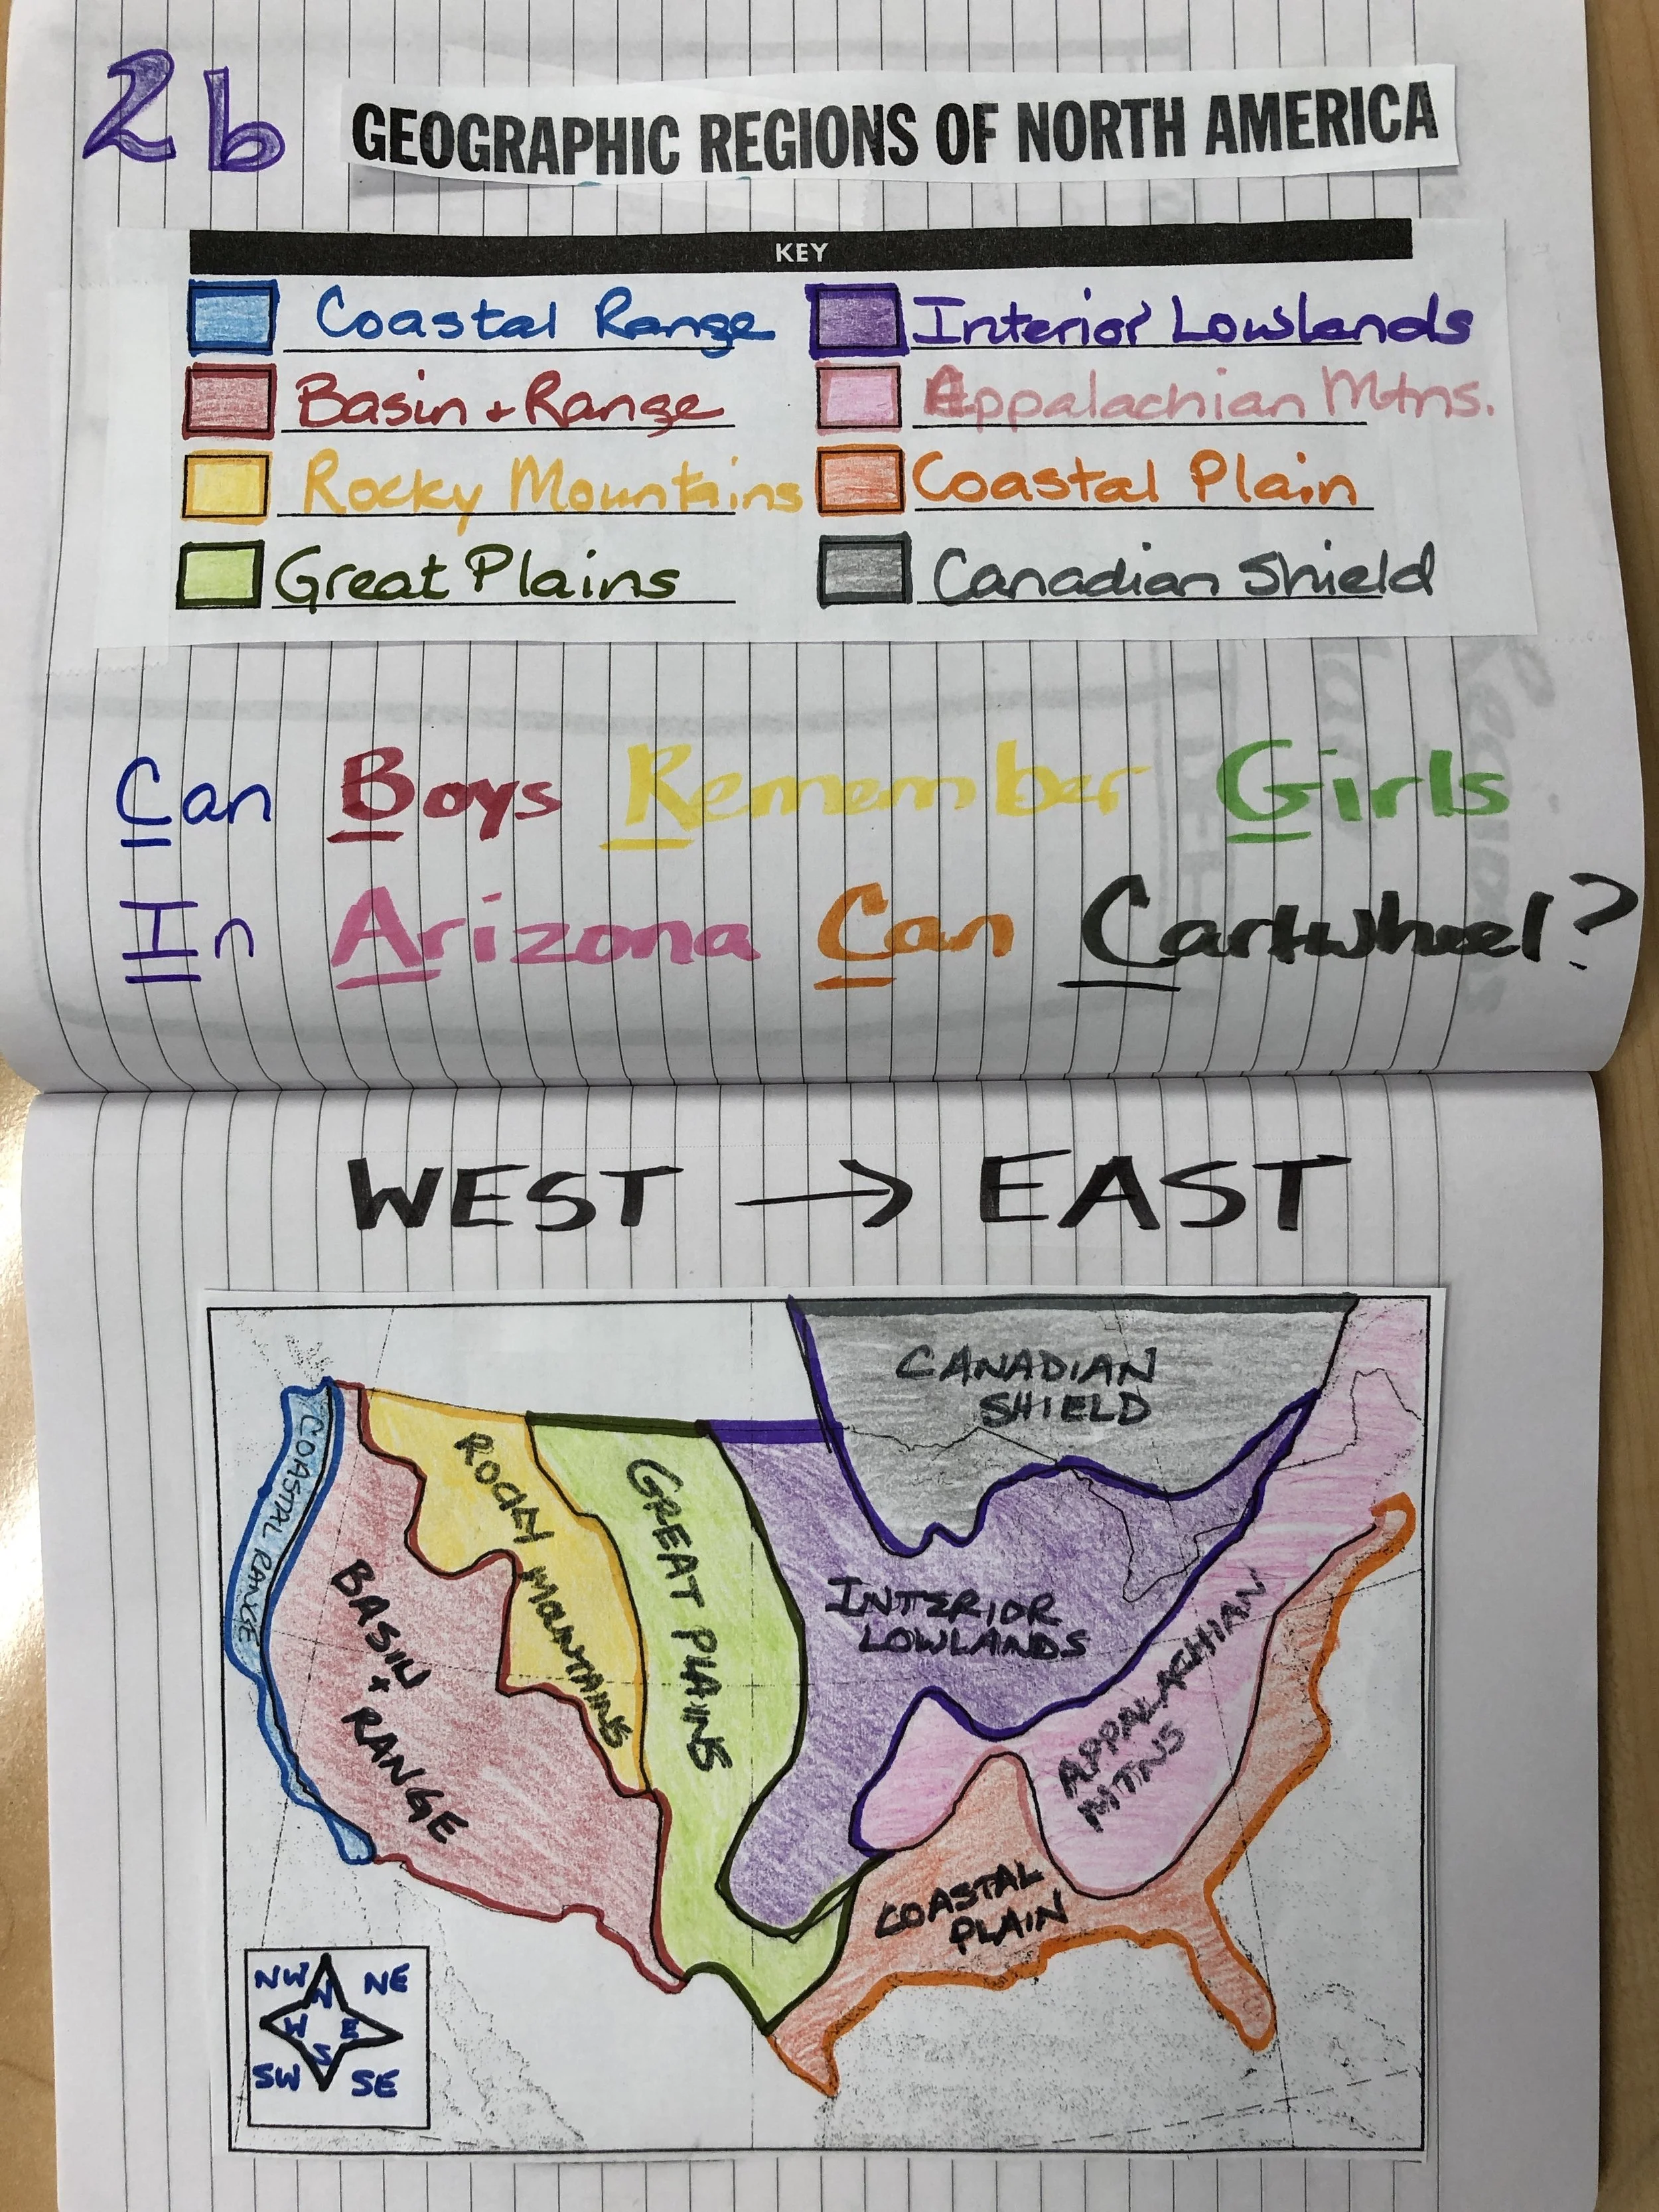 2b GEOGRAPHIC REGIONS OF NORTH AMERICA
KEY
Coastal Range
Basin + Range
Rocky Mountains
Great Plains
Interior Lowlands
Appalachian Mtns.
Coastal Plain
Canadian Shield
Can Boys Remember Girls
In Arizona Can Cartwheel?
WEST → EAST
COASTAL RANGE
BASIN + RANGE
ROCKY MOUNTAINS
GREAT PLAINS
CANADIAN
SHIELD
INTERIOR
LOWLANDS
APPALACHIAN
MTNS
COASTAL
PLAIN
NW N NE
W E
SW S SE